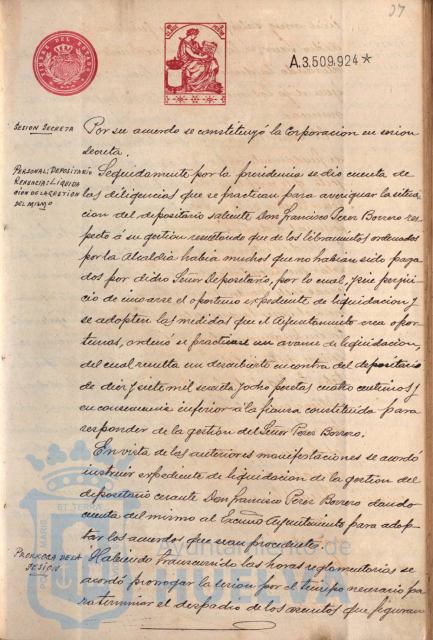 37
TIMBRE DEL ESTADO
A.3.509.924*
SESION SECRETA
Por su acuerdo se constituyó la Corporacion en sesion
secreta.
PERSONAL: DEPOSITARIO
RENUNCIA: LIQUIDA
CION DE LA GESTION
DEL MISMO
Seguidamente por la presidencia se dio cuenta de
las diligencias que se practican para averiguar la situa
cion del depositario saliente Don Francisco Perez Borrero res
pecto á su gestion resultando que de los libramientos ordenados
por la Alcaldia habia muchos que no habian sido paga
dos por dicho Señor Depositario, por lo cual, y sin perjui
cio de incoarse el oportuno expediente de liquidacion y
se adopten las medidas que el Ayuntamiento crea opor
tunas, ordenó se practicase un avance de liquidacion,
del cual resulta un descubierto en contra del depositario
de diez y siete mil sesenta y ocho pesetas cuatro centimos y
en consecuencia inferior á la fianza constituida para
responder de la gestion del Señor Perez Borrero.
En vista de las anteriores manifestaciones se acordó
instruir expediente de liquidacion de la gestion del
depositario cesante Don Francisco Perez Borrero dando
cuenta del mismo al Excmo Ayuntamiento para adop
tar los acuerdos que sean procedentes.
PRORROGA DE LA
SESION
Habiendo transcurrido las horas reglamentarias se
acordó prorrogar la sesion por el tiempo necesario pa
ra terminar el despacho de los asuntos que figuran
Ayuntamiento de
HUELVA